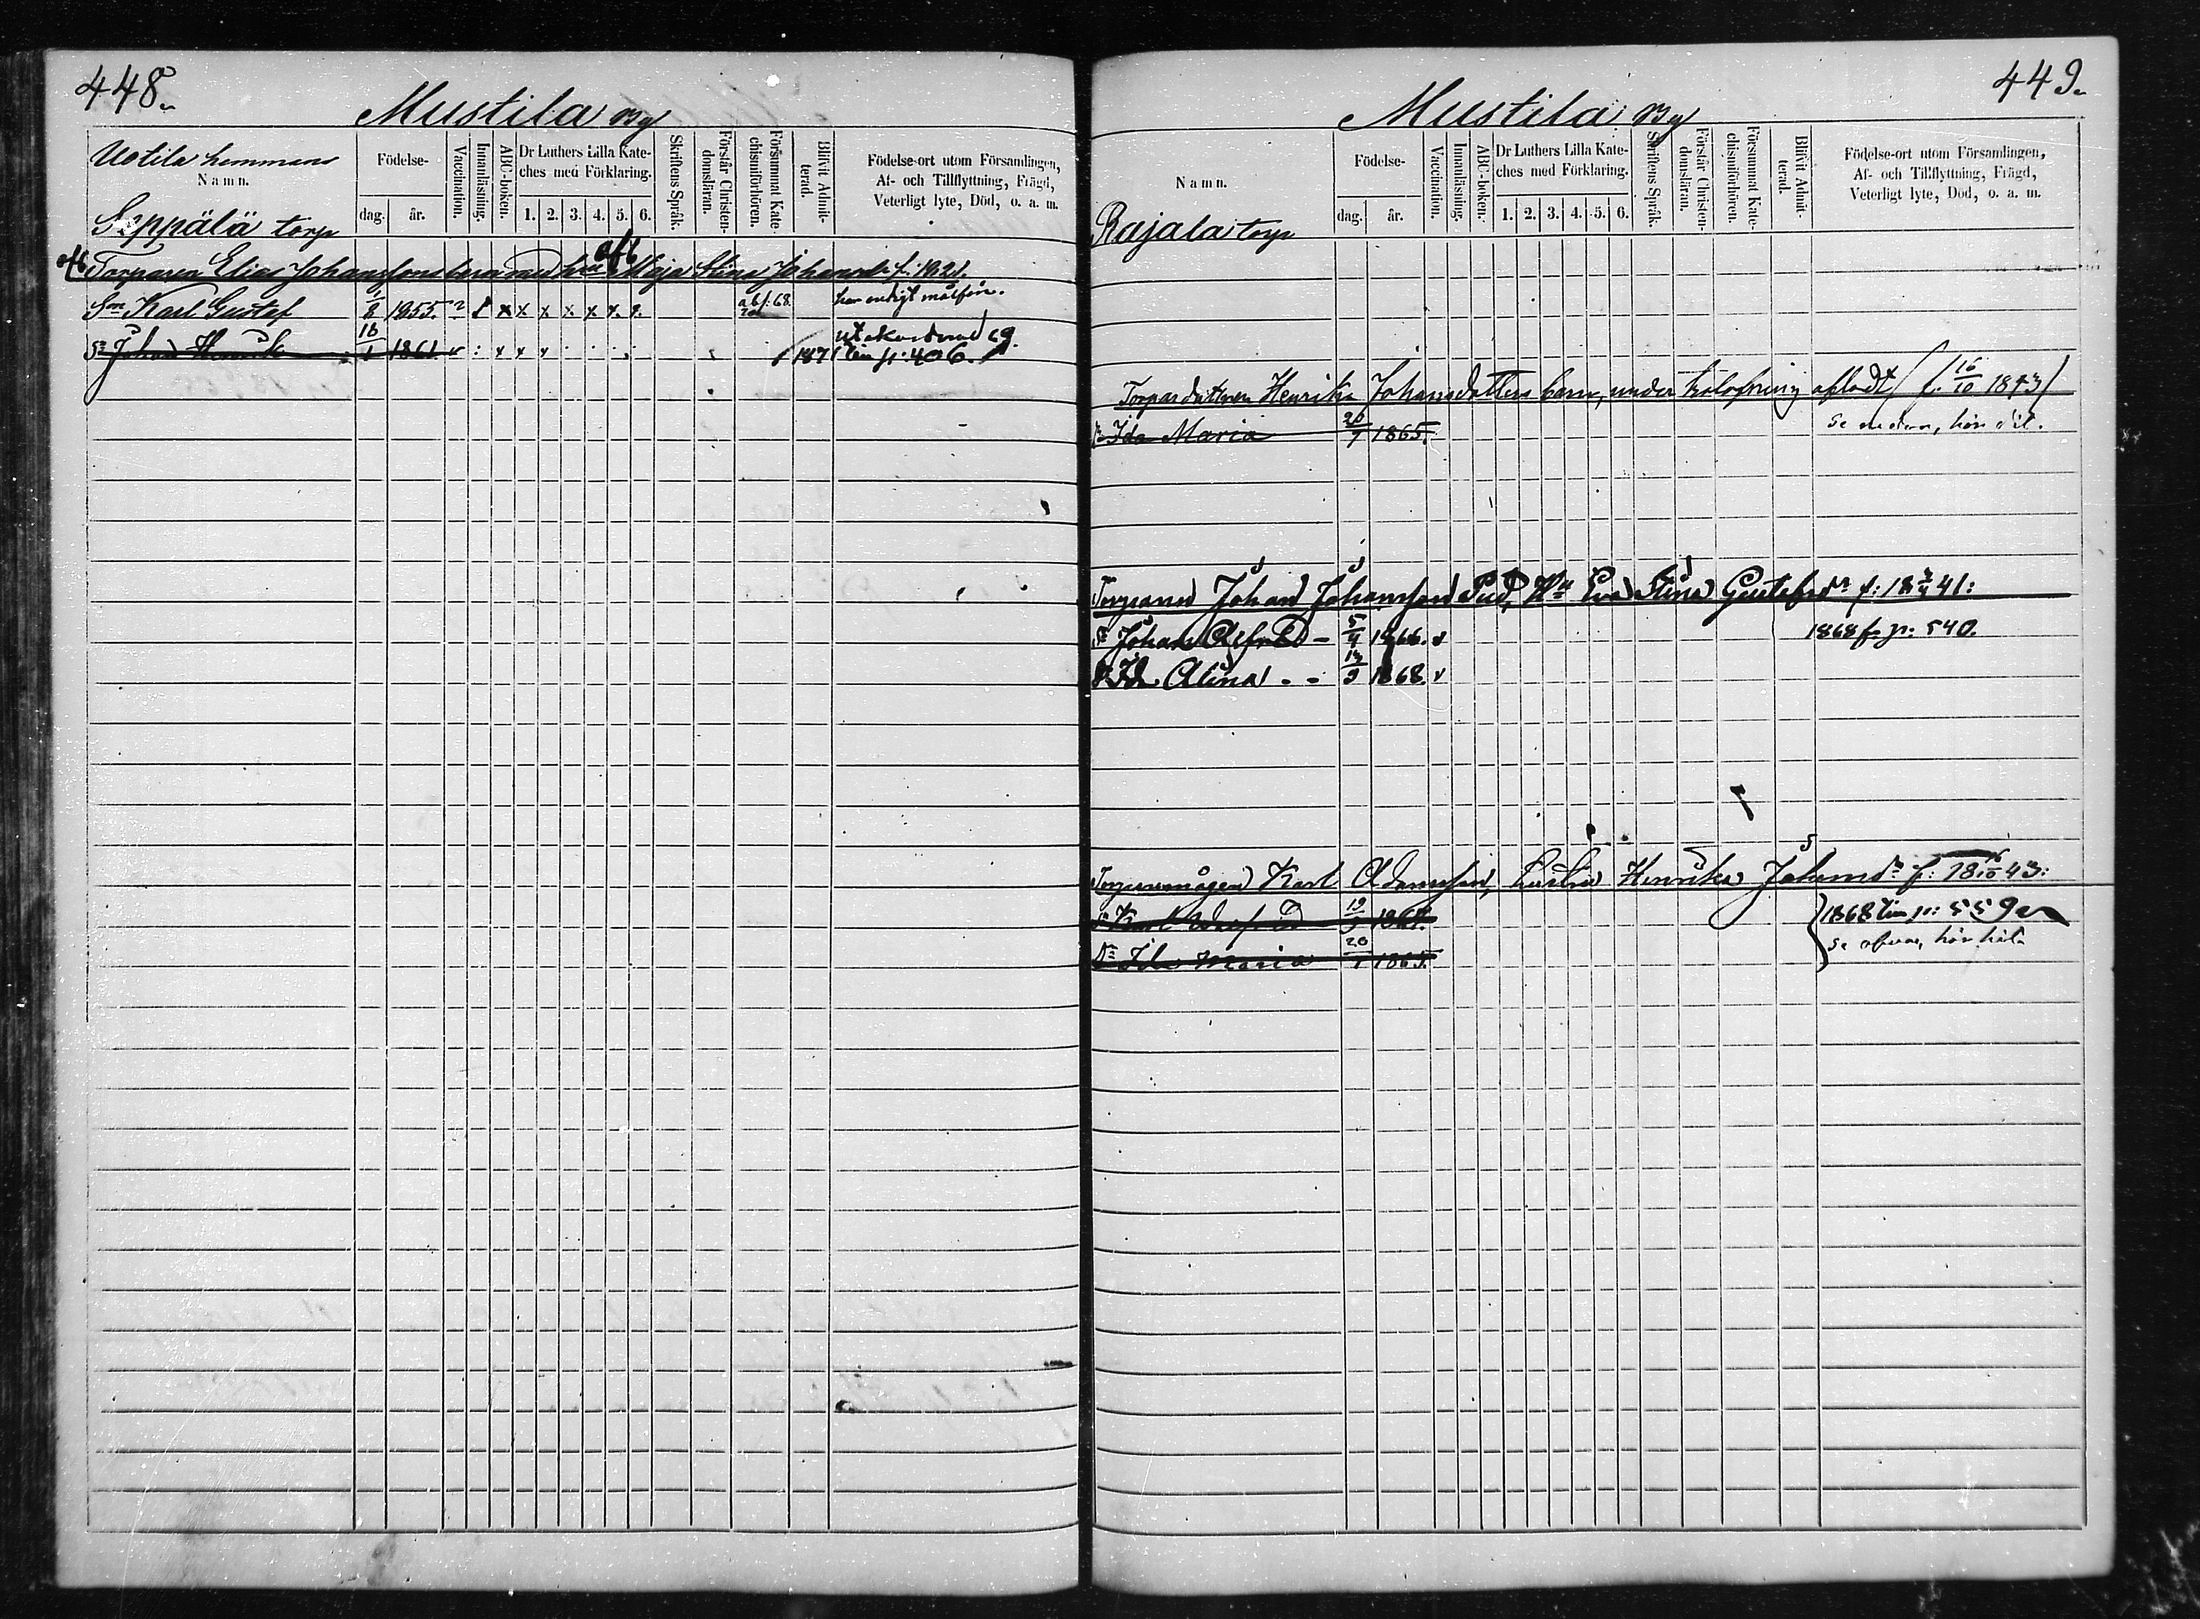 448.
Mustila By
Uotila hemmans
Namn.
Födelse-
dag. år.
Vaccination.
Innanläsning.
ABC-boken.
Dr Luthers Lilla Kate-
ches med Förklaring.
1. 2. 3. 4. 5. 6.
Skriftens Språk.
Förstår Christen-
domsläran.
Försummat Kate-
chismiförhören.
Blifvit Admit-
terad.
Födelse-ort utom Församlingen,
Af- och Tillflyttning, Frägd,
Veterligt lyte, Död, o. a. m.
Seppälä torp
Torparen Elias Johanssons barn med Maja Stina Johansdr f. 1821.
Sn Karl Gustaf 1/8 1855. x x x x x 68.
Sn Johan Henrik 16/1 1861 v x x x 1871 till p: 406.
449.
Mustila By
Namn.
Födelse-
dag. år.
Vaccination.
Innanläsning.
ABC-boken.
Dr Luthers Lilla Kate-
ches med Förklaring.
1. 2. 3. 4. 5. 6.
Skriftens Språk.
Förstår Christen-
domsläran.
Försummat Kate-
chismiförhören.
Blifvit Admit-
terad.
Födelse-ort utom Församlingen,
Af- och Tillflyttning, Frägd,
Veterligt lyte, Död, o. a. m.
Rajala torp
Torpardottren Henrika Johansdotters barn, under trolofning afladt (f. 16/10 1843)
Ida Maria 20/7 1865. se nedan, hör dit.
Torparen Johan Johansson Hu Eva Stina Gustafsdr f: 18 41:
Sn Johan Alfred - 5/4 1866. v 1868 fr p: 540.
Dr Ida Alina - - 13/9 1868. v
Torparemågen Karl Adamsson, hustru Henrika Johansdr f: 18 16/10 43:
Sn Karl 19/9 1867. 1868 till p: 559
Dr Ida Maria 20/7 1865. se ofvan, hör hit.